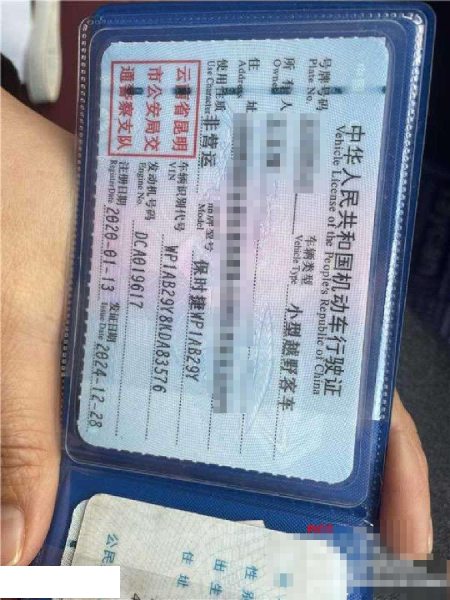 中华人民共和国机动车行驶证
Vehicle License of the People's Republic of China
号牌号码
Plate No.
车辆类型
Vehicle Type
小型越野客车
所有人
Owner
住址
使用性质
Use Character
非营运
品牌型号
Model
保时捷WP1AB29Y
云南省昆明
市公安局交
通警察支队
车辆识别代号
VIN
WP1AB29Y8KDA83576
发动机号码
Engine No.
DCA019617
注册日期
Register Date
2020-01-13
发证日期
Issue Date
2024-12-28
性别
出生
住址
公民